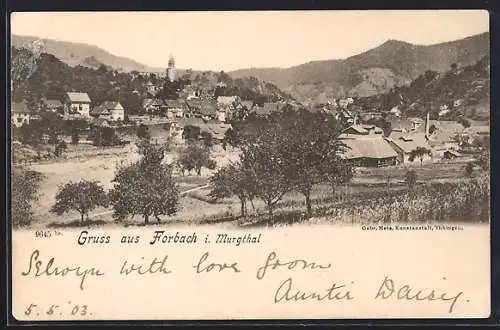 9645 b.
Gruss aus Forbach i. Murgthal
Gebr. Metz, Kunstanstalt, Tübingen.
Selwyn with love from
Auntie Daisy.
5. 5. 03